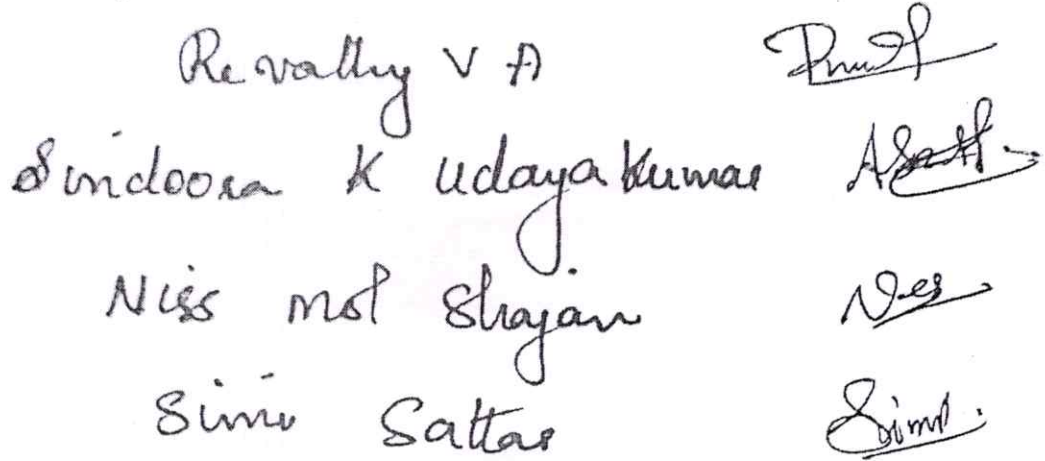 Revathy V A
Sindoora K Udaya Kumar
Niss mol Shajan
Simi Sattar Simi.